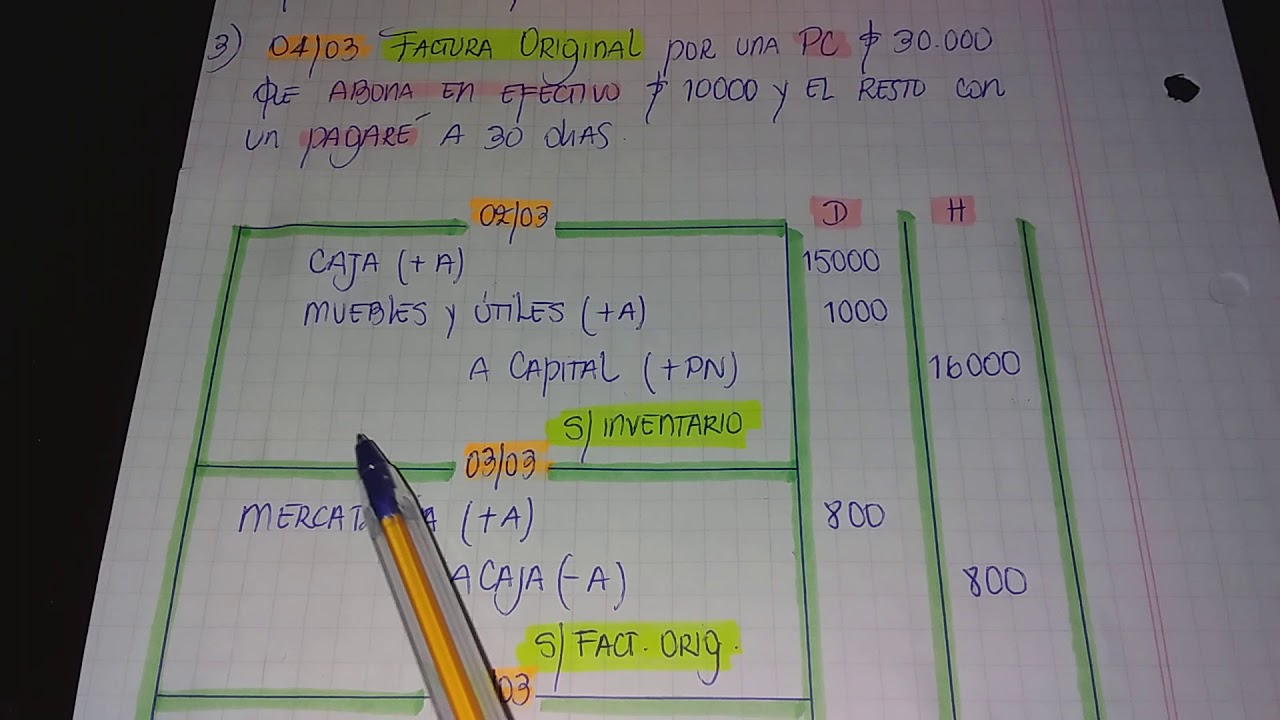 3) 04/03 FACTURA ORIGINAL POR UNA PC $ 30.000
QUE ABONA EN EFECTIVO $ 10000 Y EL RESTO CON
UN PAGARÉ A 30 DIAS.
02/03 D H
CAJA (+A) 15000
MUEBLES Y ÚTILES (+A) 1000
A CAPITAL (+PN) 16000
S/ INVENTARIO
03/03
(+A) 800
A CAJA (-A) 800
S/ FACT. ORIG.
03